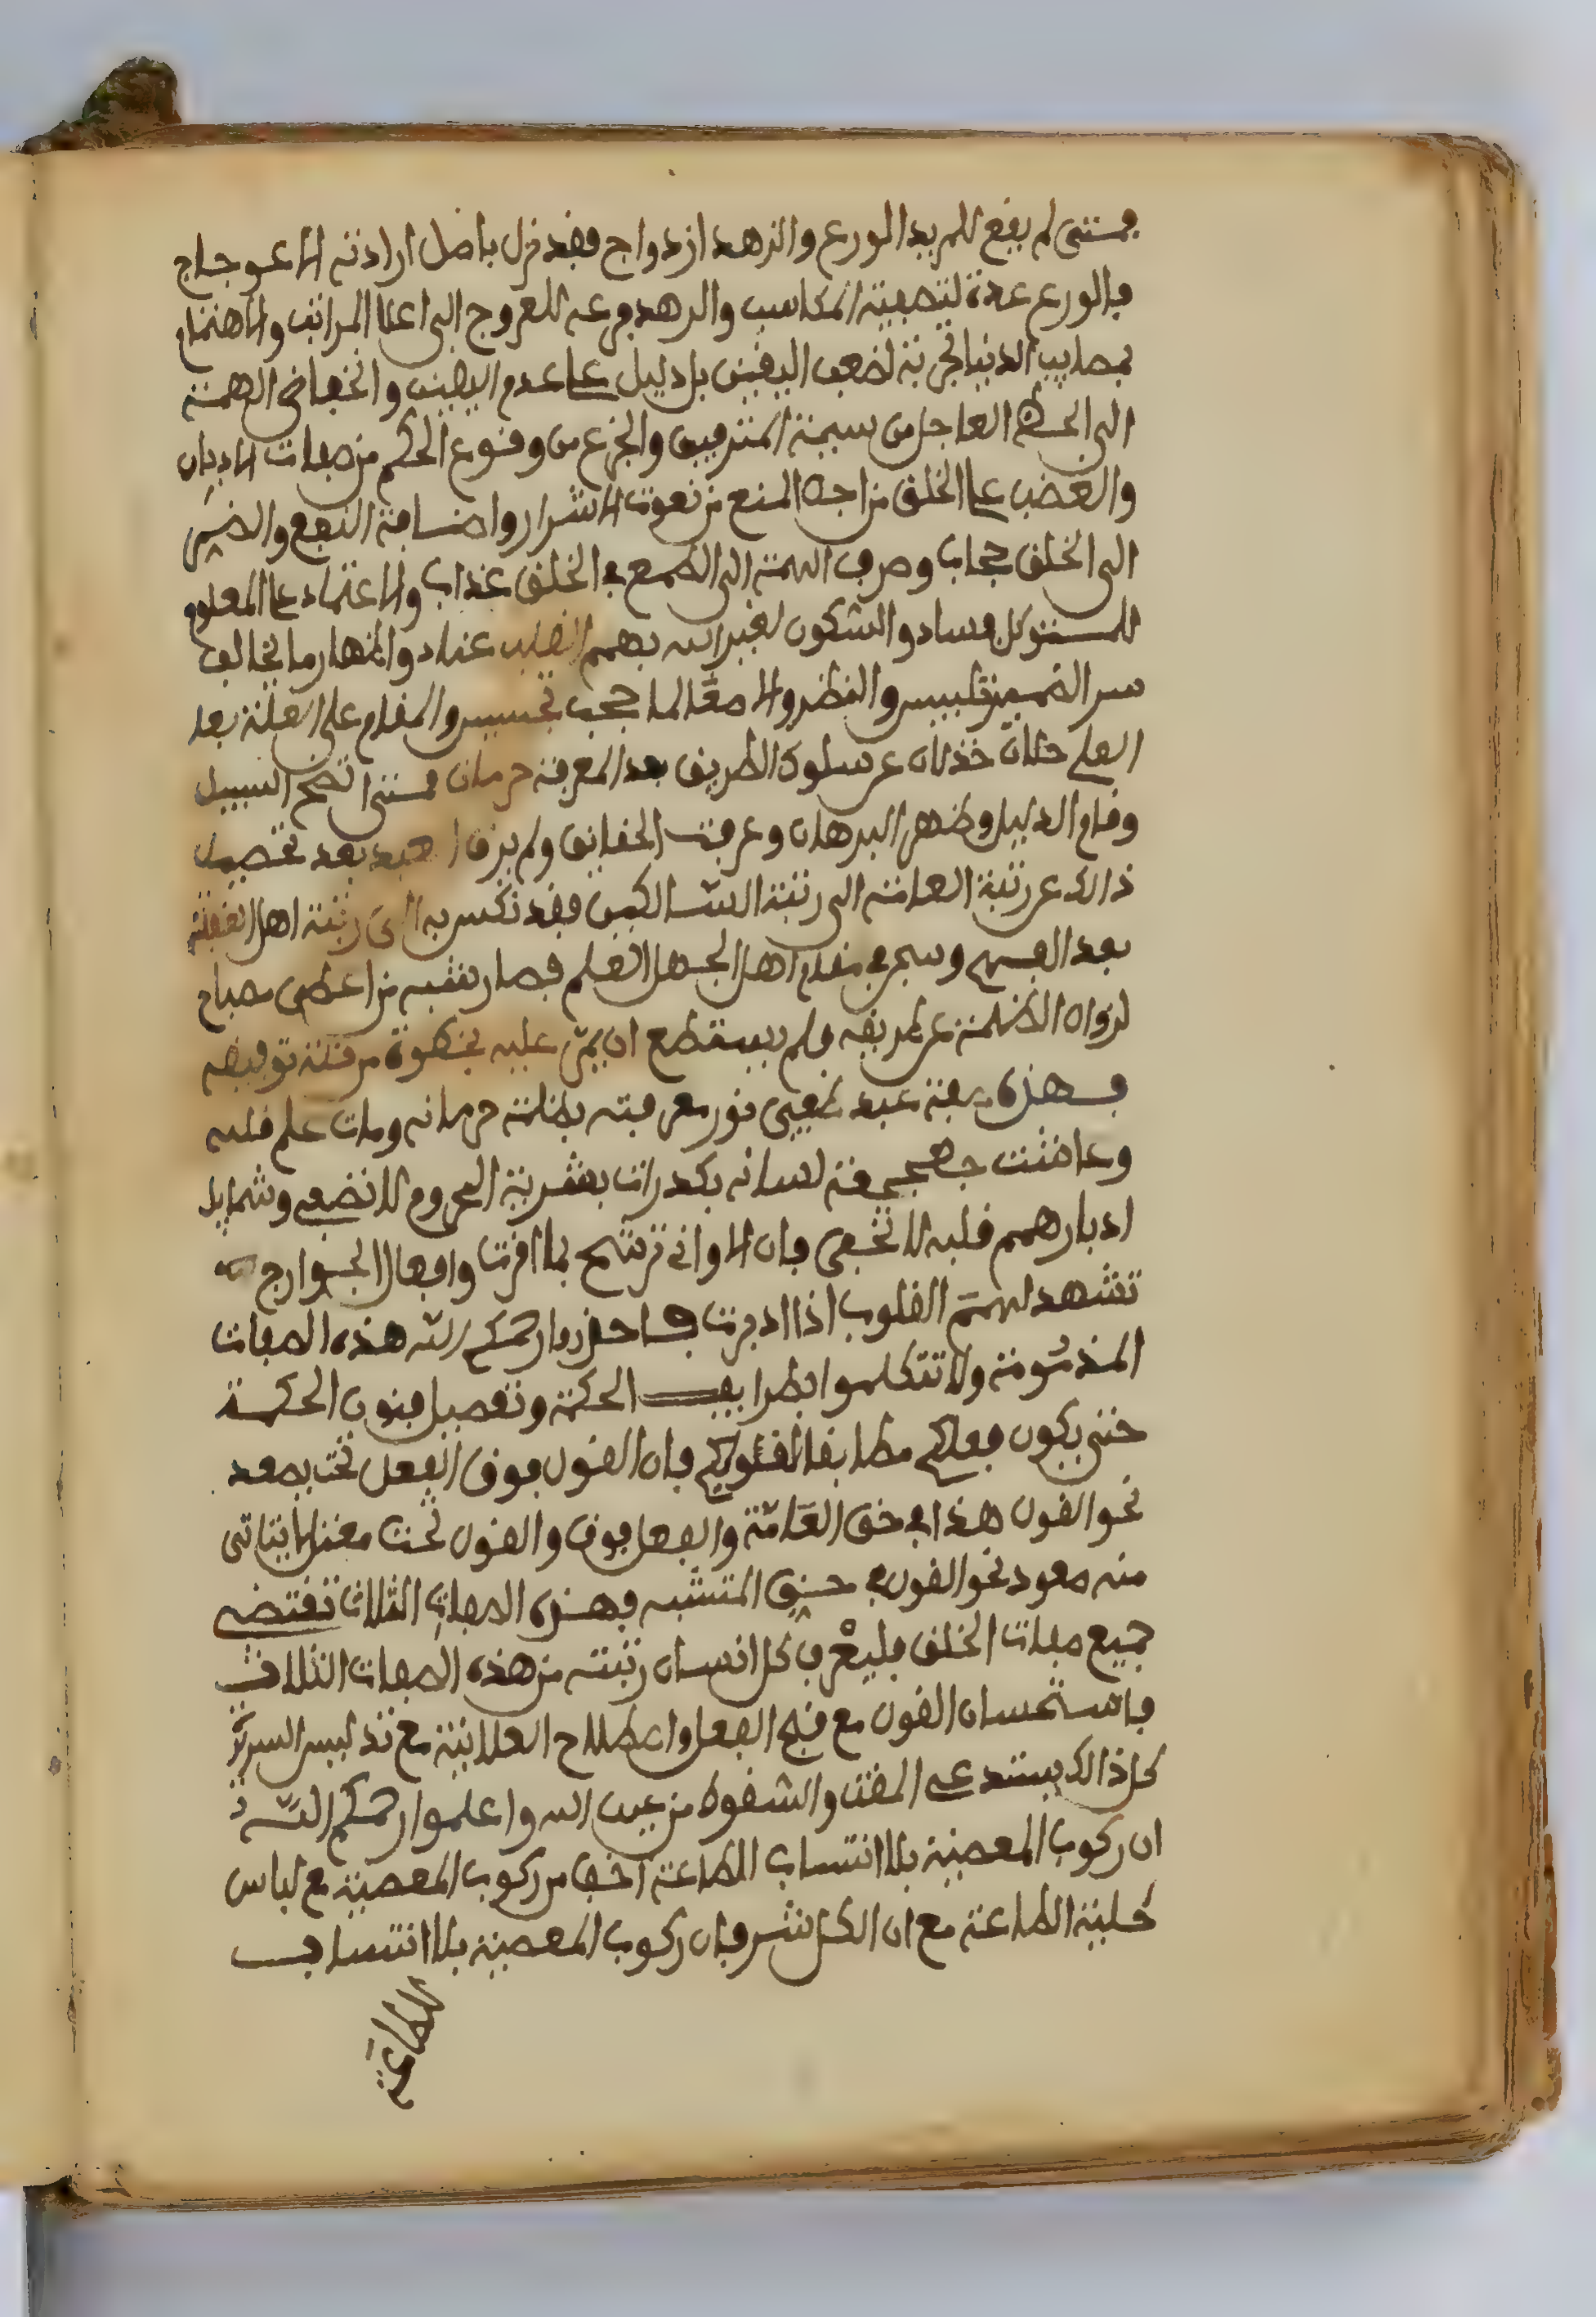 فمتى لم يقع للمريد الورع والزهد ازدواج فقد نزل باصل ارادته الاعوجاج
فالورع عدة لتصفية المكاسب والزهد للعروج الى اعلا المراتب والاهتمام
بمصايب الدنيا لضعف اليقين بل دليل على عدم اليقين وانخفاض الهمة
الى الحظ العاجل من سيمة المترفين والجزع من وقوع الحكم من صفات الاديان
والغضب على الخلق من اجل المنع من نعوت الاشرار واضافة النفع والضير
الى الخلق حجاب وصرف الهمة الى الطمع في الخلق عذاب والاعتماد على المعلوم
للمتوكل فساد والشكون لغير الله بهمم القلب عناد والمنهار ما يخالف
سر الضمير تلبيس والنظر والاصغا لما حجب تخسيس والمقام على العلة بعد
العلم خذلان عن سلوك الطريق بعد المعرفة حرمان فمتى اتضح السبيل
وقام الدليل وظهر البرهان وعرفت الحقايق ولم يرق العبد بعد تحصيل
ذالك عن رتبة العامة الى رتبة السالكين فقد نكس به الى رتبة اهل الغفلة
بعد الفهم وسجن في مقام اهل الجهل العلم فصار تشبه من اعطى مصباح
لزوال الظلمة عن طريقه ولم يستطع ان يمر عليه بخطوة من قلة توفيقه
فهذه صفة عبد طفيى نور معرفته بظلمة حرمانه ومات علم قلبه
وعاشت جهجهة لسانه بكدرات بشرية المحروم لا تضعف وشمايل
ادبار همم قلبه لا تخفى فان الاوانى ترشح بما افرت وافعال الجوارح
تشهد لهمم القلوب اذا ادبرت فاحذروا رحمكم الله هذه الصفات
المذمومة ولا تتكلموا بطرايف الحكمة وتفصيل فنون الحكمة
حتى يكون فعلكم مطابقا لقلوبكم فان القول فوق الفعل تحت يصعد
نحو القول هذا في حق العامة والفعل فوق والقول تحت مغنل لا يتاتى
منه صعود نحو القول في حق المتشبه فهذه الصفات الثلاث تقتضي
جميع صفات الخلق فليعرف كل انسان رتبته من هذه الصفات الثلاث
فاستحسان القول مع قبح الفعل واصطلاح العلانية مع تدليس السرير
كل ذالك يستدعي المقت والسقوط من عين الله واعلموا رحمكم الله
ان ركوب المعصية بلا انتساب للطاعة اخف من ركوب المعصية مع لباس
حلية الطاعة مع ان الكل شر فان ركوب المعصية بلا انتساب
للطاعة